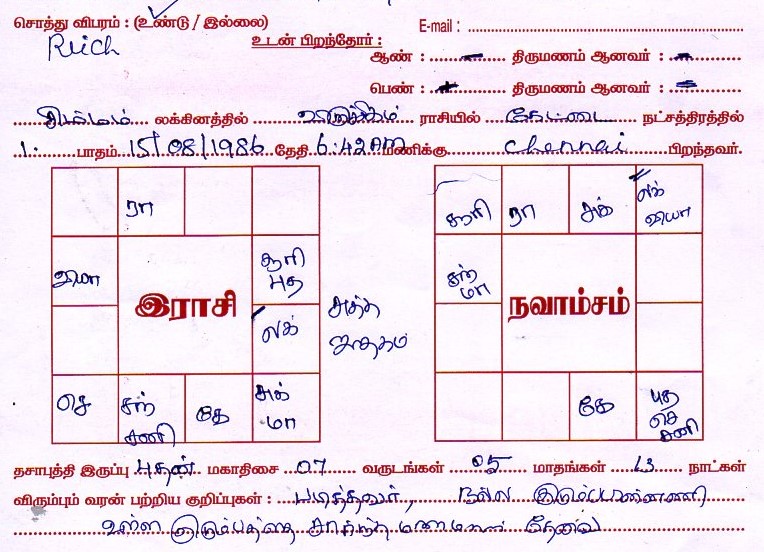 சொத்து விபரம் : (உண்டு / இல்லை) E-mail :
Reich உடன் பிறந்தோர் :
ஆண் : – திருமணம் ஆனவர் : –
பெண் : – திருமணம் ஆனவர் : –
சிம்மம் லக்கினத்தில் விருச்சிகம் ராசியில் கேட்டை நட்சத்திரத்தில்
1. பாதம் 15/08/1986 தேதி 6:42 AM மணிக்கு Chennai பிறந்தவர்.
ரா சூரி ரா சுக் லக் வியா
சூரி புத சந் மா
இராசி லக் சுத்த ஜாதகம் நவாம்சம்
செ சந் சனி கே சுக் மா கே புத செ சனி
தசாபுத்தி இருப்பு புதன் மகாதிசை 07 வருடங்கள் 05 மாதங்கள் 13 நாட்கள்
விரும்பும் வரன் பற்றிய குறிப்புகள் : படித்தவர், நல்ல
உள்ள சார்ந்த மணமகன் தேவை